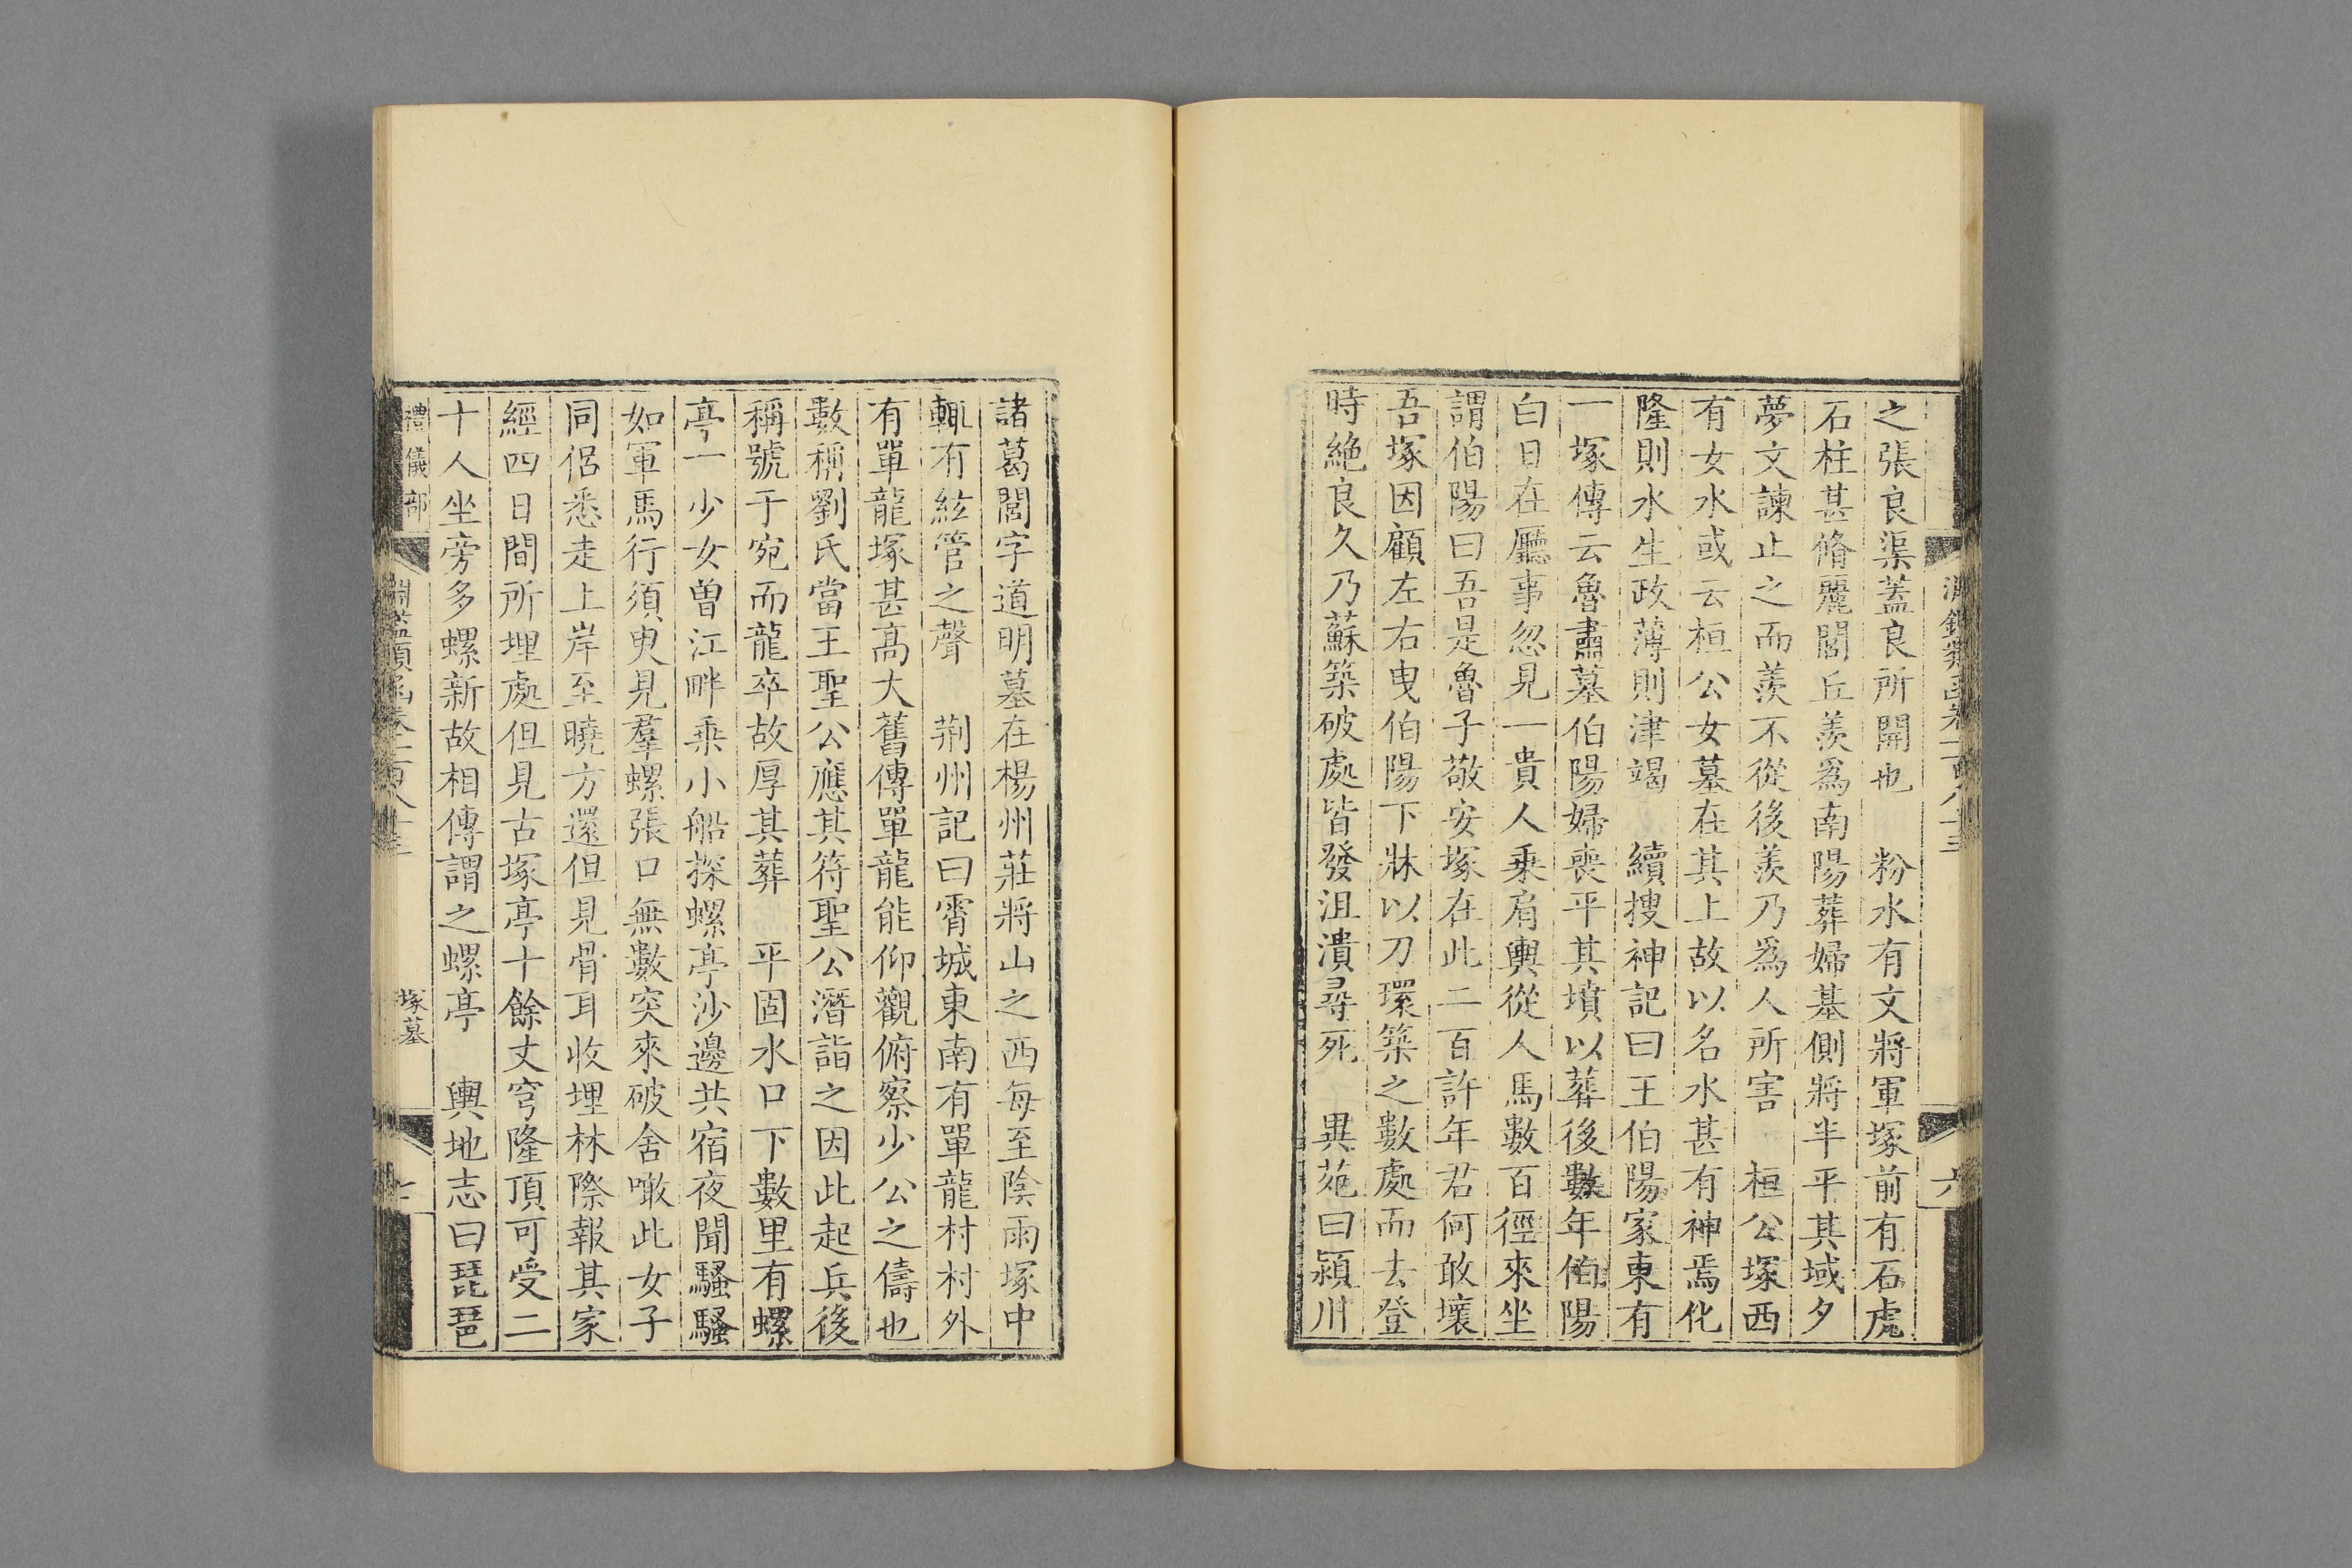 之張良渠蓋良所開也　粉水有文將軍塚前有石虎
石柱甚脩麗閭丘羨爲南陽葬婦墓側將半平其域夕
夢文諫止之而羨不從後羨乃爲人所害　桓公塚西
有女水或云桓公女墓在其上故以名水甚有神焉化
隆則水生政薄則津竭　續搜神記曰王伯陽家東有
一塚傳云魯肅墓伯陽婦喪平其墳以葬後數年伯陽
白日在廳事忽見一貴人乗肩輿從人馬數百徑來坐
謂伯陽曰吾是魯子敬安塚在此二百許年君何敢壞
吾塚因顧左右曳伯陽下牀以刀環築之數處而去登
時絶良久乃蘇築破處皆發沮潰尋死　異苑曰潁川
諸葛閭字道明墓在楊州莊將山之西每至陰雨塚中
輒有絃管之聲　荆州記曰霄城東南有單龍村村外
有單龍塚甚高大舊傳單龍能仰觀俯察少公之儔也
數稱劉氏當王聖公應其符聖公潛詣之因此起兵後
稱號于宛而龍卒故厚其葬　平固水口下數里有螺
亭一少女曽江畔乗小船採螺亭沙邊共宿夜聞騷騷
如軍馬行須臾見羣螺張口無數突來破舍噉此女子
同侶悉走上岸至曉方還但見骨耳收埋林際報其家
經四日間所埋處但見古塚亭十餘丈穹隆頂可受二
十人坐旁多螺新故相傳謂之螺亭　輿地志曰琵琶
禮儀部
塚墓